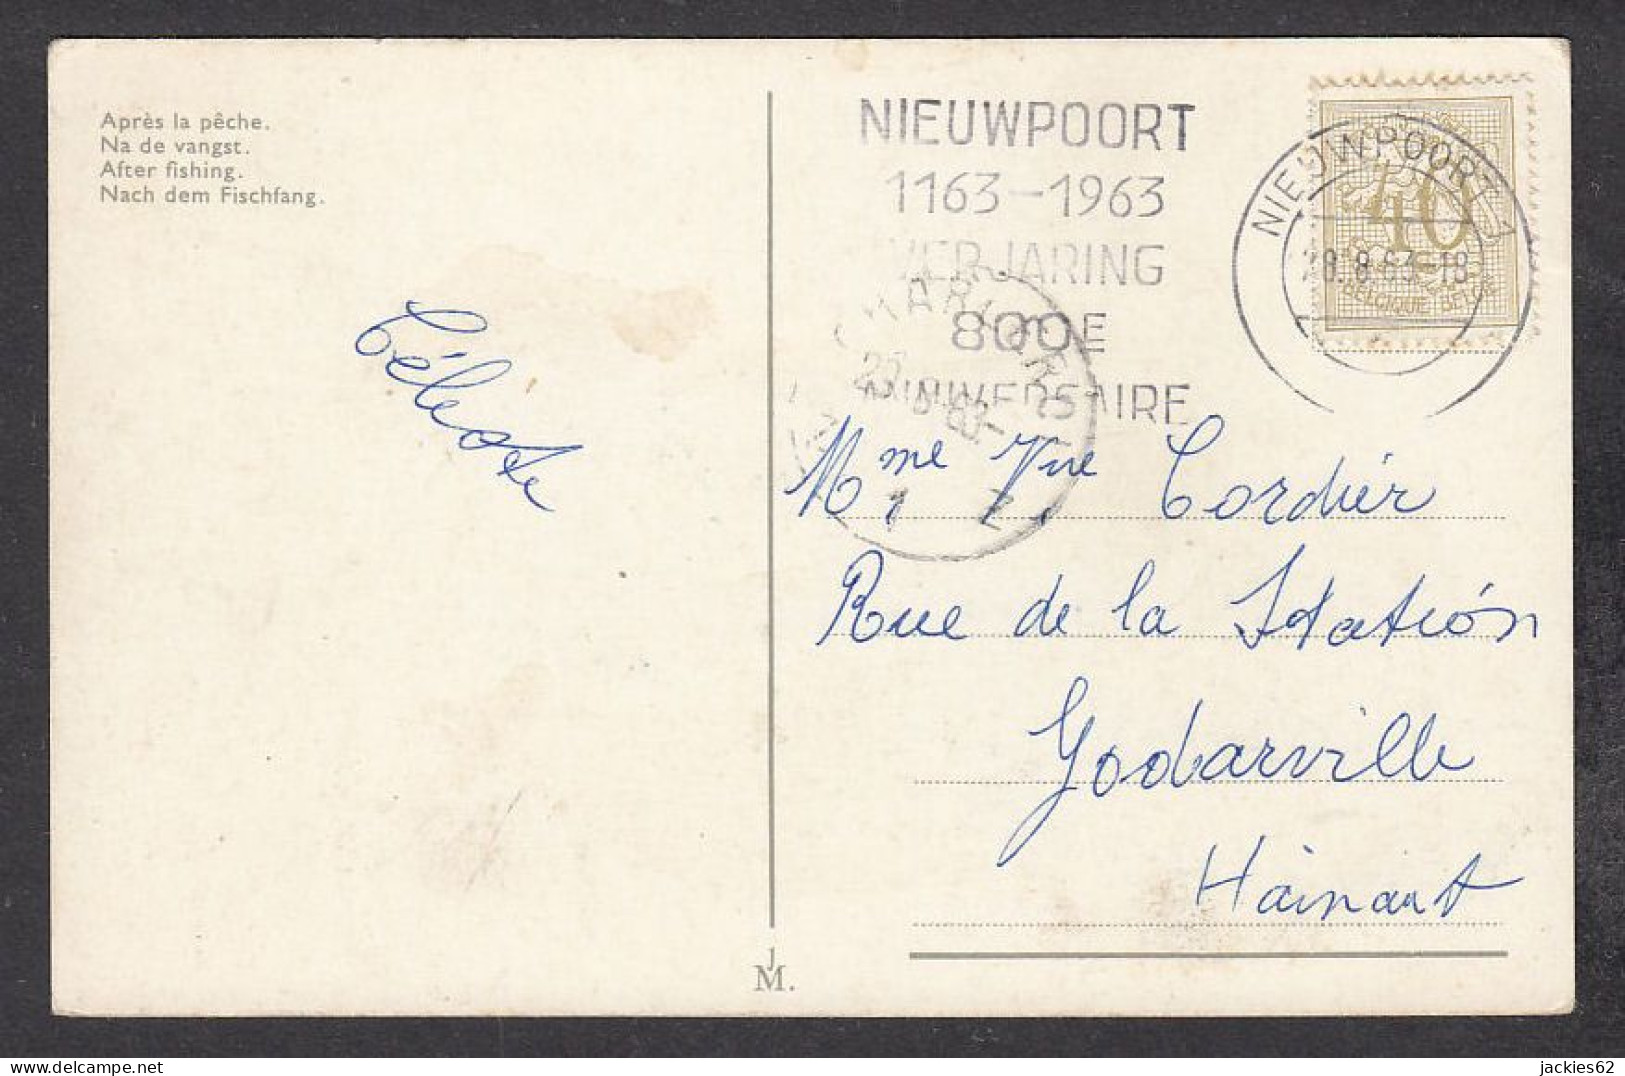 Après la pêche.
Na de vangst.
After fishing.
Nach dem Fischfang.
Céleste
NIEUWPOORT
1163-1963
VERJARING
800E
ANNIVERSAIRE
NIEUWPOORT 1
28.8.63-18
40
BELGIQUE BELGIE
1 Z
Mme Vve Cordier
Rue de la Station
Godarville
Hainaut
JM.
jackies62